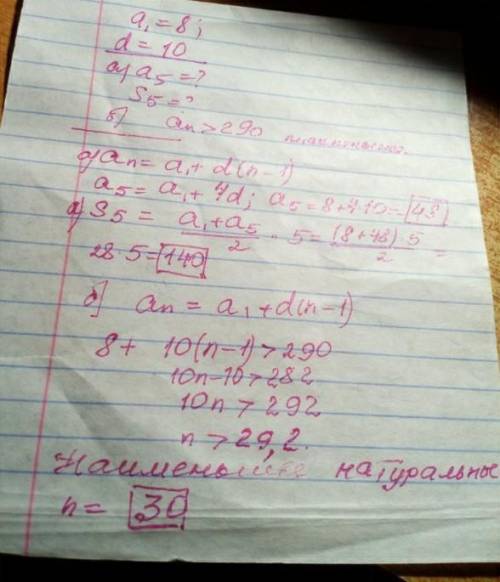 a₁ = 8;
d = 10
а) a₅ = ?
S₅ = ?
б) aₙ > 290
а) aₙ = a₁ + d(n-1)
a₅ = a₁ + 4d; a₅ = 8 + 4·10 = 48
S₅ = (a₁ + a₅)/2 · 5 = (8 + 48)·5/2 =
28·5 = 140
б] aₙ = a₁ + d(n-1)
8 + 10(n-1) > 290
10n - 10 > 282
10n > 292
n > 29,2.
натуральные
n = 30